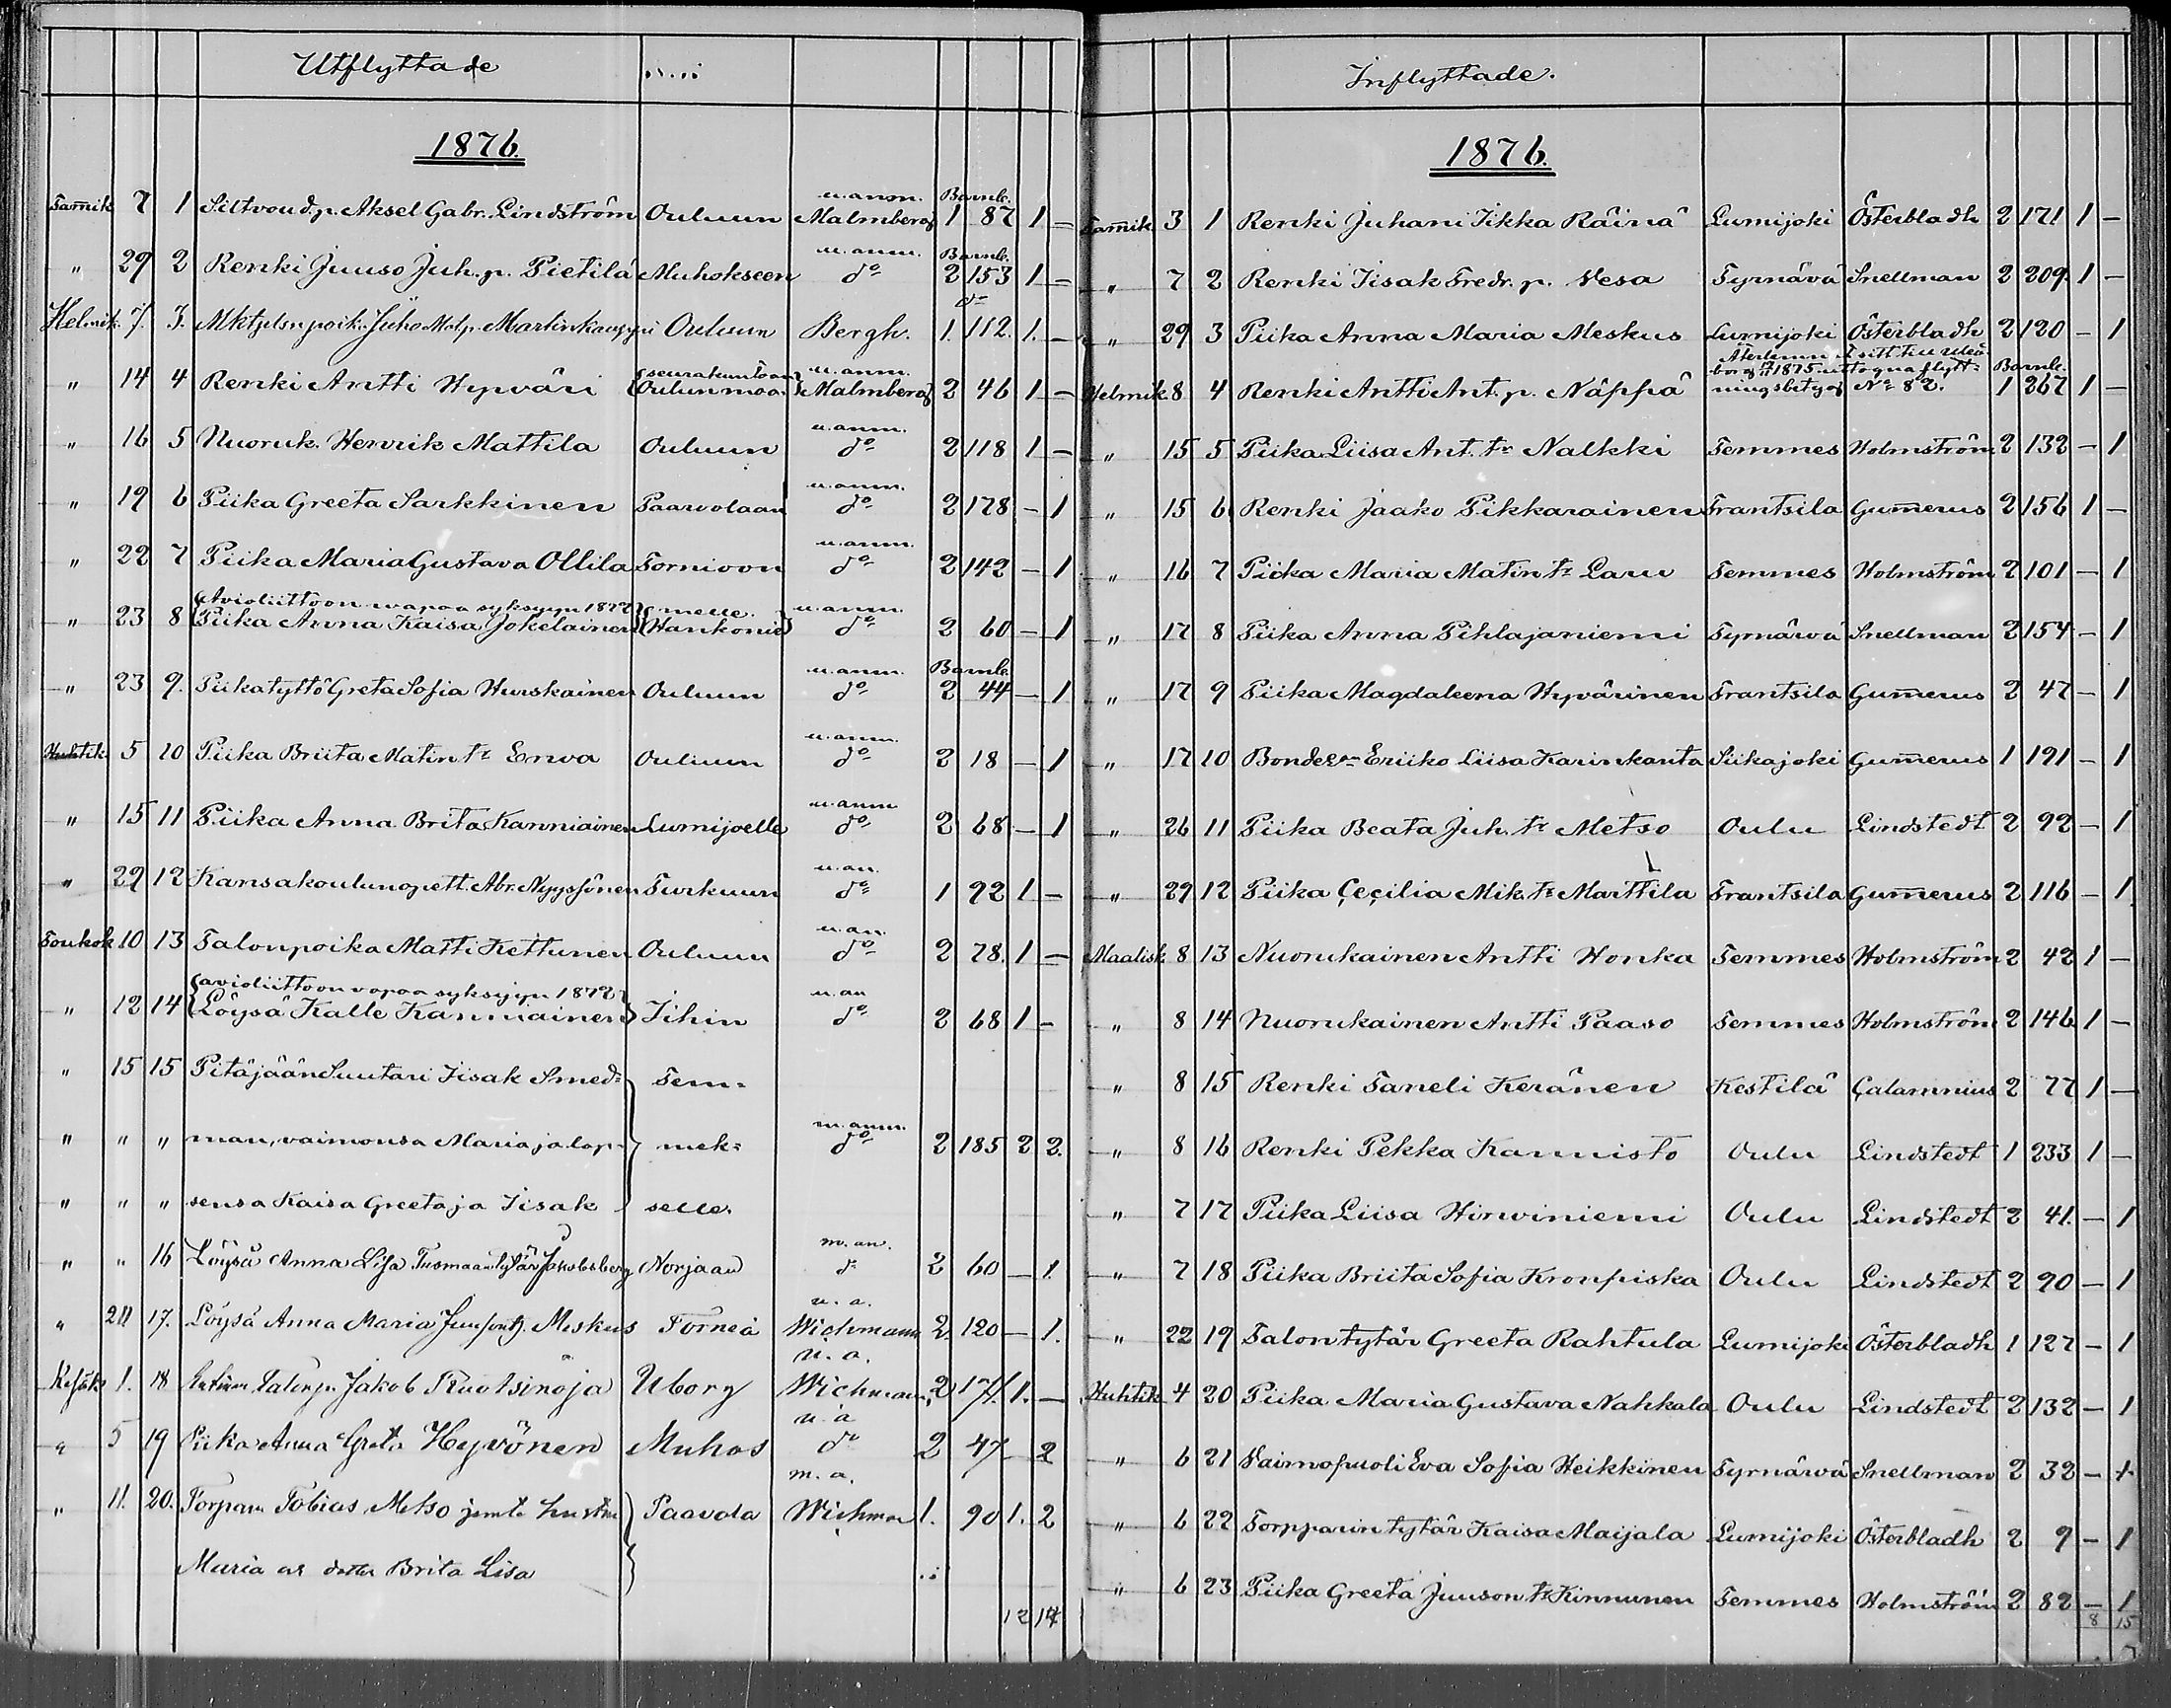 Utflyttade
1876.
u.anm. Barnb.
Tam̅ik 7 1 Siltvoud.p. Aksel Gabr. Lindström Ouluun Malmberg 1 87 1 —
u.anm. Barnb.
" 29 2 Renki Juuso Juh.p. Pietilä Muhokseen d:o 2 153 1 —
d:o
Helmik. 7. 3. Juho Matp. Martinkauppi Ouluun Bergh. 1. 112. 1. —
seurakuntaan u.anm.
" 14 4 Renki Antti Hyväri Oulunmaan Malmberg 2 46 1 —
u.anm.
" 16 5 Nuoruk. Henrik Mattila Ouluun d:o 2 118 1 —
u.anm.
" 19 6 Piika Greeta Sarkkinen Paavolaan d:o 2 178 — 1
u.anm.
" 22 7 Piika Maria Gustava Ollila Tornioon d:o 2 142 — 1
Avioliittoon vapaa syksyyn 1872 melle. u.anm.
" 23 8 Piika Anna Kaisa Jokelainen Hankonie d:o 2 60 — 1
u.anm. Barnb.
" 23 9. Piikatyttö Greta Sofia Hurskainen Ouluun d:o 2 44 — 1
u.anm.
Huhtik. 5 10 Piika Briita Matin tr Erwa Ouluun d:o 2 18 — 1
u.anm
" 15 11 Piika Anna Brita Kanniainen Lumijoelle d:o 2 68 — 1
u.an.
" 29 12 Kansakoulunopett. Abr. Nyyssönen Turkuun d:o 1 92 1 —
u.an.
Toukok 10 13 Talonpoika Matti Kettunen Ouluun d:o 2 78. 1 —
avioliittoon vapaa syksyyn 1872 u.an
" 12 14 Löysä Kalle Kanniainen Jihin d:o 2 68 1 -
" 15 15 Pitäjään Suutari Iisak Smed= Tem=
m.anm.
" " " man, vaimonsa Maria ja lap= mek= d:o 2 185 2 2.
" " " sensa Kaisa Greeta ja Iisak selle.
m.an.
" " 16 Löysä Anna Lisa tytär Jakobsberg Norjaan d:o 2 60 — 1.
u.a.
" 20 17. Löysä Anna Maria Meskus Torneå Wichmann 2. 120 — 1.
u.a.
Kesäk 1. 18 Talonp. Jakob Ruotsinoja Uborg Wichmann 2 171. 1. —
u.a
" 5 19 Piika Anna Greta Hyvönen Muhos d:o 2 47 — 2
m.a.
" 11. 20. Torparn Tobias Metso jemte hustru Paavola Wichman 1. 90 1. 2
Maria o. dotter Brita Lisa
12 14
Inflyttade.
1876.
Tam̅ik. 3 1 Renki Juhani Iikka Räinä Lumijoki Österbladh 2 171 1 —
" 7 2 Renki Iisak Fredr. p. Vesa Tyrnävä Snellman 2 209. 1 —
" 29 3 Piika Anna Maria Meskus Lumijoki Österbladh 2 120 — 1
Återlemn. sitt till Uleå
borg 1875 uttagna flytt= Barnb.
Helmik 8 4 Renki Antti Ant. p. Näppä ningsbetyg N:o 82. 1 267 1 —
" 15 5 Piika Liisa Ant. tr Nalkki Temmes Holmström 2 132 — 1
" 15 6 Renki Jaako Pikkarainen Frantsila Gum̅erus 2 156 1 —
" 16 7 Piika Maria Matin tr Laru Temmes Holmström 2 101 — 1
" 17 8 Piika Anna Pihlajaniemi Tyrnäwä Snellman 2 154 — 1
" 17 9 Piika Magdaleena Hyvärinen Frantsila Gum̅erus 2 47 — 1
" 17 10 Eriiko Liisa Karinkanta Siikajoki Gum̅erus 1 191 — 1
" 26 11 Piika Beata Juh. tr Metso Oulu Lindstedt 2 92 — 1
" 29 12 Piika Cecilia Mik. tr Marttila Frantsila Gum̅erus 2 116 — 1
Maalisk 8 13 Nuorukainen Antti Honka Temmes Holmström 2 42 1 —
" 8 14 Nuorukainen Antti Paaso Temmes Holmström 2 146 1 —
" 8 15 Renki Taneli Keränen Kestilä Calamnius 2 77 1 —
" 8 16 Renki Pekka Kannisto Oulu Lindstedt 1 233 1 —
" 7 17 Piika Liisa Hirwiniemi Oulu Lindstedt 2 41. — 1
" 7 18 Piika Briita Sofia Kronpiska Oulu Lindstedt 2 90 — 1
" 22 19 Talontytär Greeta Rahtula Lumijoki Österbladh 1 127 — 1
Huhtik 4 20 Piika Maria Gustava Nahkala Oulu Lindstedt 2 132 — 1
" 6 21 Vaimopuoli Eva Sofia Heikkinen Tyrnäwä Snellman 2 32 — 1
" 6 22 Torpparin tytär Kaisa Maijala Lumijoki Österbladh 2 9 — 1
" 6 23 Piika Greeta Juuson tr Kinnunen Temmes Holmström 2 82 — 1
8 15